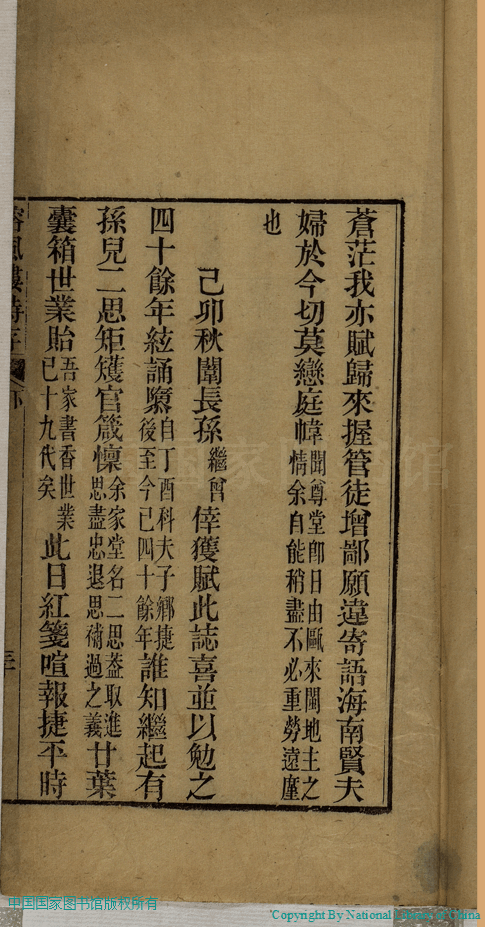 蒼茫我亦賦歸來握管徒增鄙願違寄語海南賢夫
婦於今切莫戀庭幃聞尊堂卽日由甌來閩地主之
情余自能稍盡不必重勞遠廑
也
己卯秋闈長孫繼曾倖獲賦此誌喜並以勉之
四十餘年絃誦隳自丁酉科夫子鄉捷
後至今已四十餘年誰知繼起有
孫兒二思矩矱官箴懍余家堂名二思葢取進
思盡忠退思補過之義廿葉
囊箱世業貽吾家書香世業
已十九代矣此日紅箋喧報捷平時
中国国家图书馆版权所有
Copyright By National Library of China